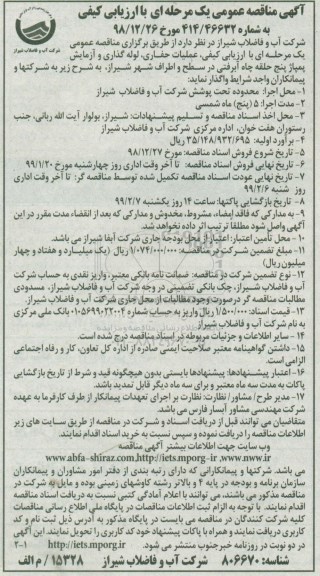 آگهی مناقصه عمومی یک مرحله ای با ارزیابی کیفی
به شماره ۴۱۴/۴۶۶۳۲ مورخ ۹۸/۱۲/۲۶
شرکت آب و فاضلاب شیراز
شرکت آب و فاضلاب شیراز در نظر دارد از طریق برگزاری مناقصه عمومی
یک مرحله ای با ارزیابی کیفی، عملیات حفاری، لوله گذاری و آزمایش
پمپاژ پنج حلقه چاه آبرفتی در سطح و اطراف شهر شیراز، به شرح زیر به شرکتها و
پیمانکاران واجد شرایط واگذار نماید:
۱- محل اجرا: محدوده تحت پوشش شرکت آب و فاضلاب شیراز
۲- مدت اجرا: ۵ (پنج) ماه شمسی
۳- محل اخذ اسناد مناقصه و تسلیم پیشنهادات: شیراز، بولوار آیت الله ربانی، جنب
رستوران هفت خوان، اداره مرکزی شرکت آب و فاضلاب شیراز
۴- برآورد اولیه: ۳۵/۱۴۸/۹۳۲/۶۹۵ ریال
۵- تاریخ شروع فروش اسناد مناقصه: مورخ ۹۸/۱۲/۲۷
۶- تاریخ نهایی فروش اسناد مناقصه: تا آخر وقت اداری روز چهارشنبه مورخ ۹۹/۱/۲۰
۷- تاریخ نهایی عودت اسناد مناقصه تکمیل شده توسط مناقصه گر: تا آخر وقت اداری
روز شنبه ۹۹/۲/۶
۸- تاریخ بازگشایی پاکتها: ساعت ۱۴ روز یکشنبه ۹۹/۲/۷
۹- به مدارکی که فاقد امضاء، مشروط، مخدوش و مدارکی که بعد از انقضاء مدت مقرر در این
آگهی واصل شود مطلقا ترتیب اثر داده نخواهد شد.
۱۰- محل تأمین اعتبار: اعتبار از محل بودجه جاری شرکت آبفا شیراز می باشد.
۱۱- مبلغ تضمین شرکت در مناقصه: ۱/۰۷۴/۰۰۰/۰۰۰ ریال (یک میلیارد و هفتاد و چهار
میلیون ریال)
۱۲- نوع تضمین شرکت در مناقصه: ضمانت نامه بانکی معتبر، واریز نقدی به حساب شرکت
آب و فاضلاب شیراز، چک بانکی تضمینی در وجه شرکت آب و فاضلاب شیراز، مسدودی
مطالبات مناقصه گر درصورت وجود مطالبات از محل جاری شرکت آب و فاضلاب شیراز.
۱۳- قیمت اسناد: ۱/۵۰۰/۰۰۰ ریال واریز به حساب شماره ۰۱۰۵۶۹۹۰۲۲۰۰۴ بانک ملی مرکزی
به نام شرکت آب و فاضلاب شیراز
۱۴- سایر اطلاعات و جزئیات مربوطه در اسناد مناقصه درج شده است.
۱۵- داشتن گواهینامه معتبر صلاحیت ایمنی صادره از اداره کل تعاون، کار و رفاه اجتماعی
الزامی است.
۱۶- اعتبار پیشنهادها: پیشنهادها بایستی بدون هیچگونه قید و شرط از تاریخ بازگشایی
پاکات به مدت سه ماه معتبر و برای سه ماه دیگر قابل تمدید باشد.
۱۷- مدیر طرح/ مشاور/ نظارت: نظارت بر اجرای تعهدات پیمانکار از طرف کارفرما به عهده
شرکت مهندسی مشاور آبسار فارس می باشد.
متقاضیان می توانند قبل از دریافت اسناد و شرکت در مناقصه از طریق سایت های زیر
اطلاعات مناقصه را دریافت نموده و سپس نسبت به خرید اسناد اقدام نمایند.
وب سایت جهت اطلاعات بیشتر آگهی مناقصه
www.abfa-shiraz.com,http://iets.mporg-ir ,www.nww.ir
می باشد. شرکتها و پیمانکارانی که دارای رتبه بندی از دفتر امور مشاوران و پیمانکاران
سازمان برنامه و بودجه در پایه ۴ و بالاتر رشته کاوشهای زمینی بوده و مایل به شرکت در
مناقصه مذکور می باشند، می توانند با اعلام آمادگی کتبی نسبت به دریافت اسناد مناقصه
اقدام نمایند. با توجه به الزام ثبت اطلاعات مناقصات در پایگاه ملی اطلاع رسانی مناقصات
کلیه شرکت کنندگان در مناقصه می بایست در پایگاه مذکور به آدرس ذیل ثبت نام و کد
کاربری دریافت نمایند و همراه با پاکات پیشنهاد خود کد کاربری را تحویل نمایند. این آگهی
در دو نوبت در روزنامه خبرجنوب منتشر می شود. http://iets.mporg.ir ۲-۱
شناسه: ۸۰۶۶۷۰ شرکت آب و فاضلاب شیراز ۱۵۳۲۸ / م الف